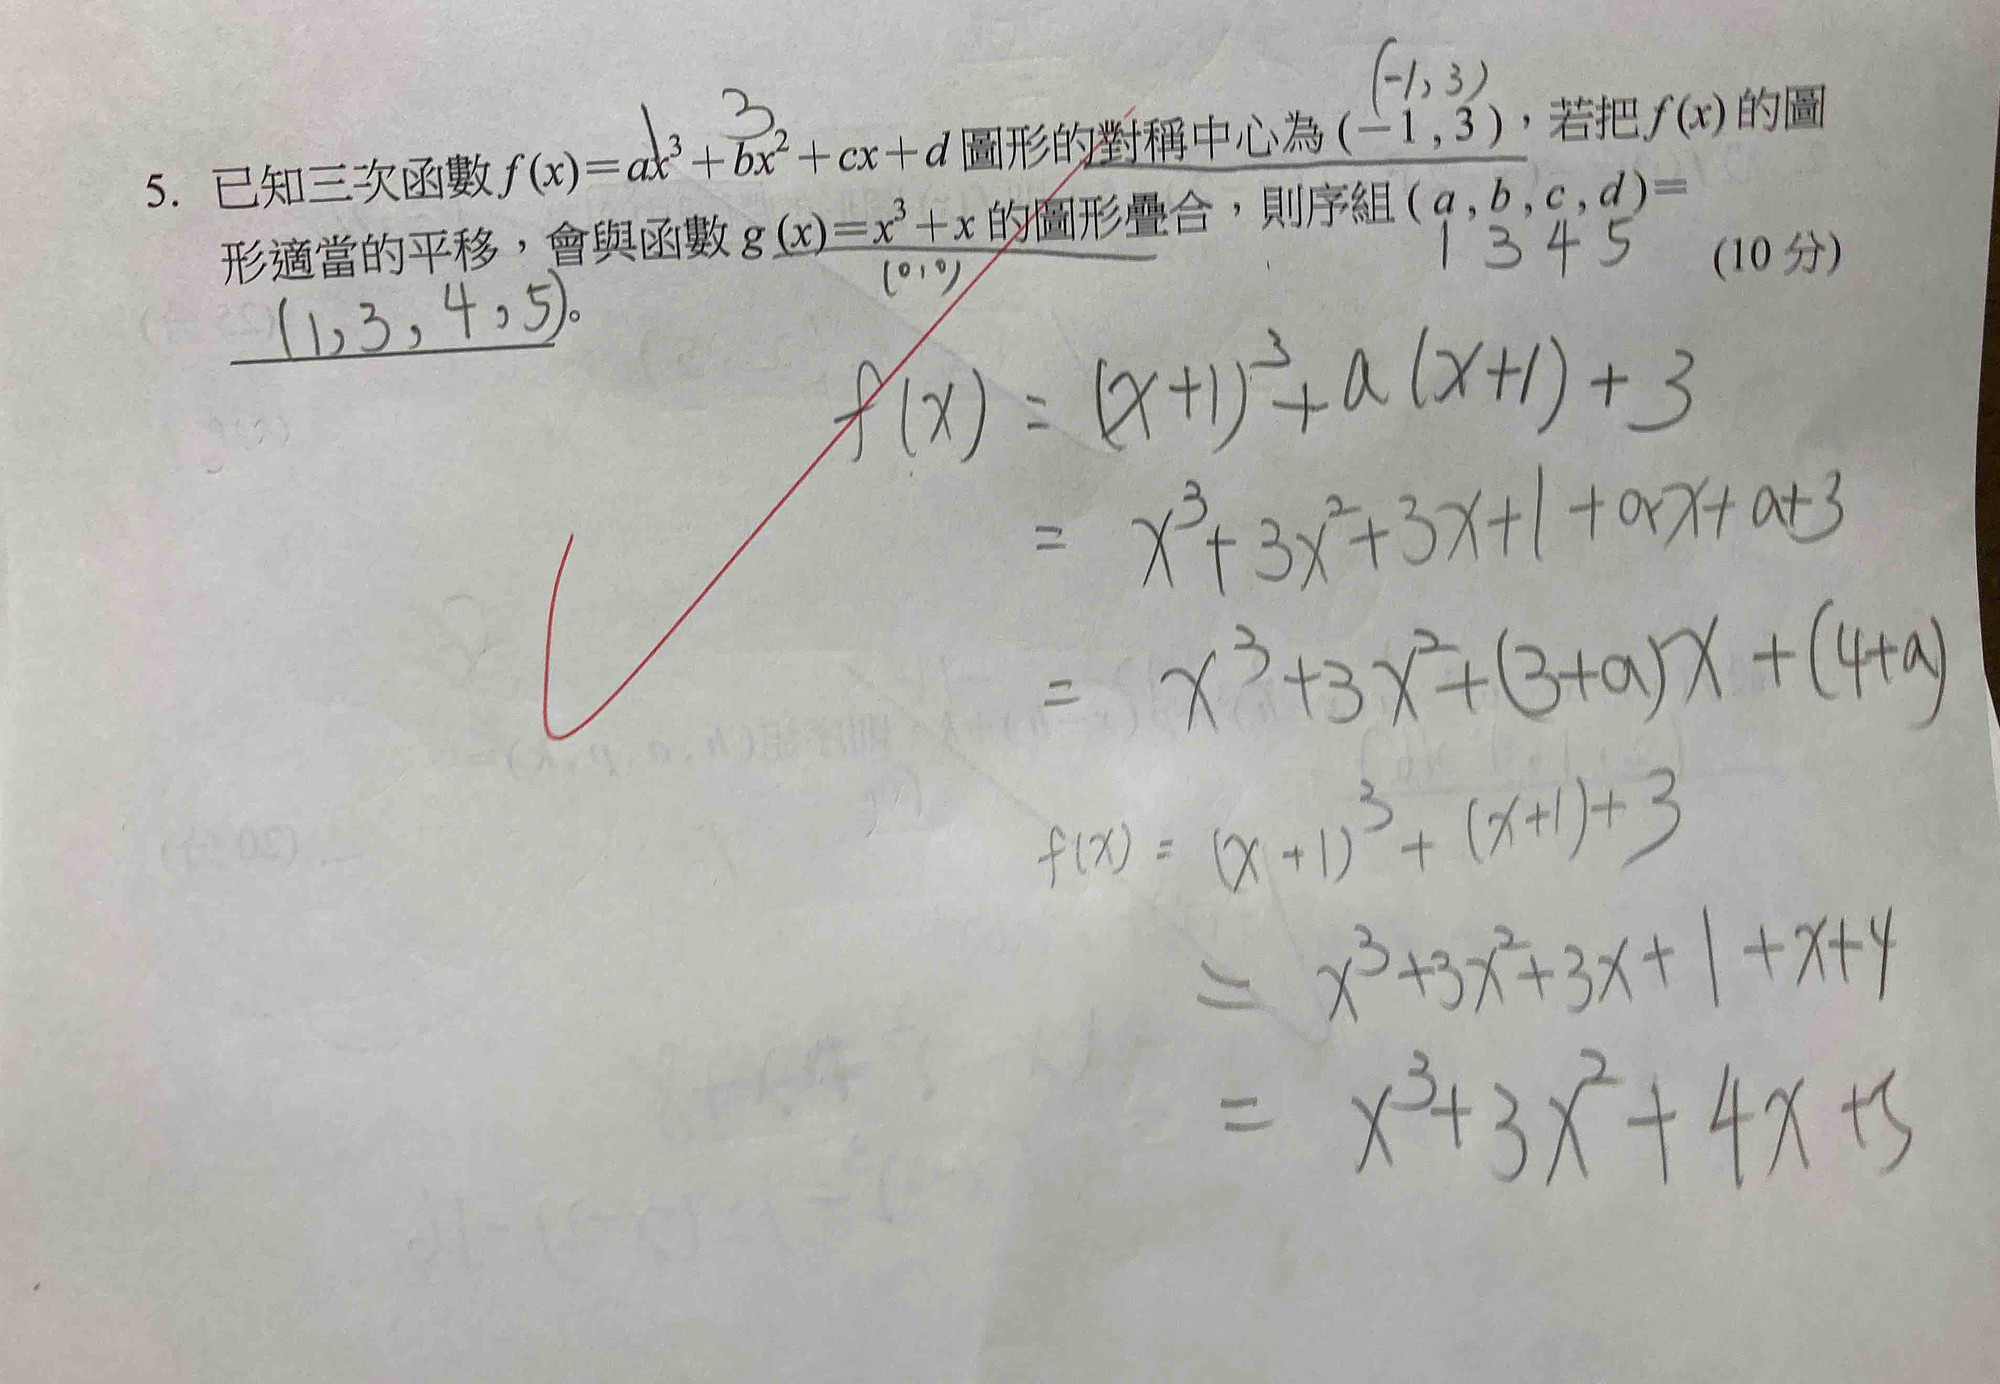 (-1, 3)
1 3
5. 已知三次函數 f(x)=ax³+bx²+cx+d 圖形的對稱中心為(-1,3),若把 f(x) 的圖
形適當的平移,會與函數 g(x)=x³+x 的圖形疊合,則序組(a,b,c,d)=
(0,0) 1 3 4 5 (10 分)
(1,3,4,5)。
f(x) = (x+1)³+a(x+1)+3
= x³+3x²+3x+1+ax+a+3
= x³+3x²+(3+a)x+(4+a)
f(x) = (x+1)³+(x+1)+3
= x³+3x²+3x+1+x+4
= x³+3x²+4x+5